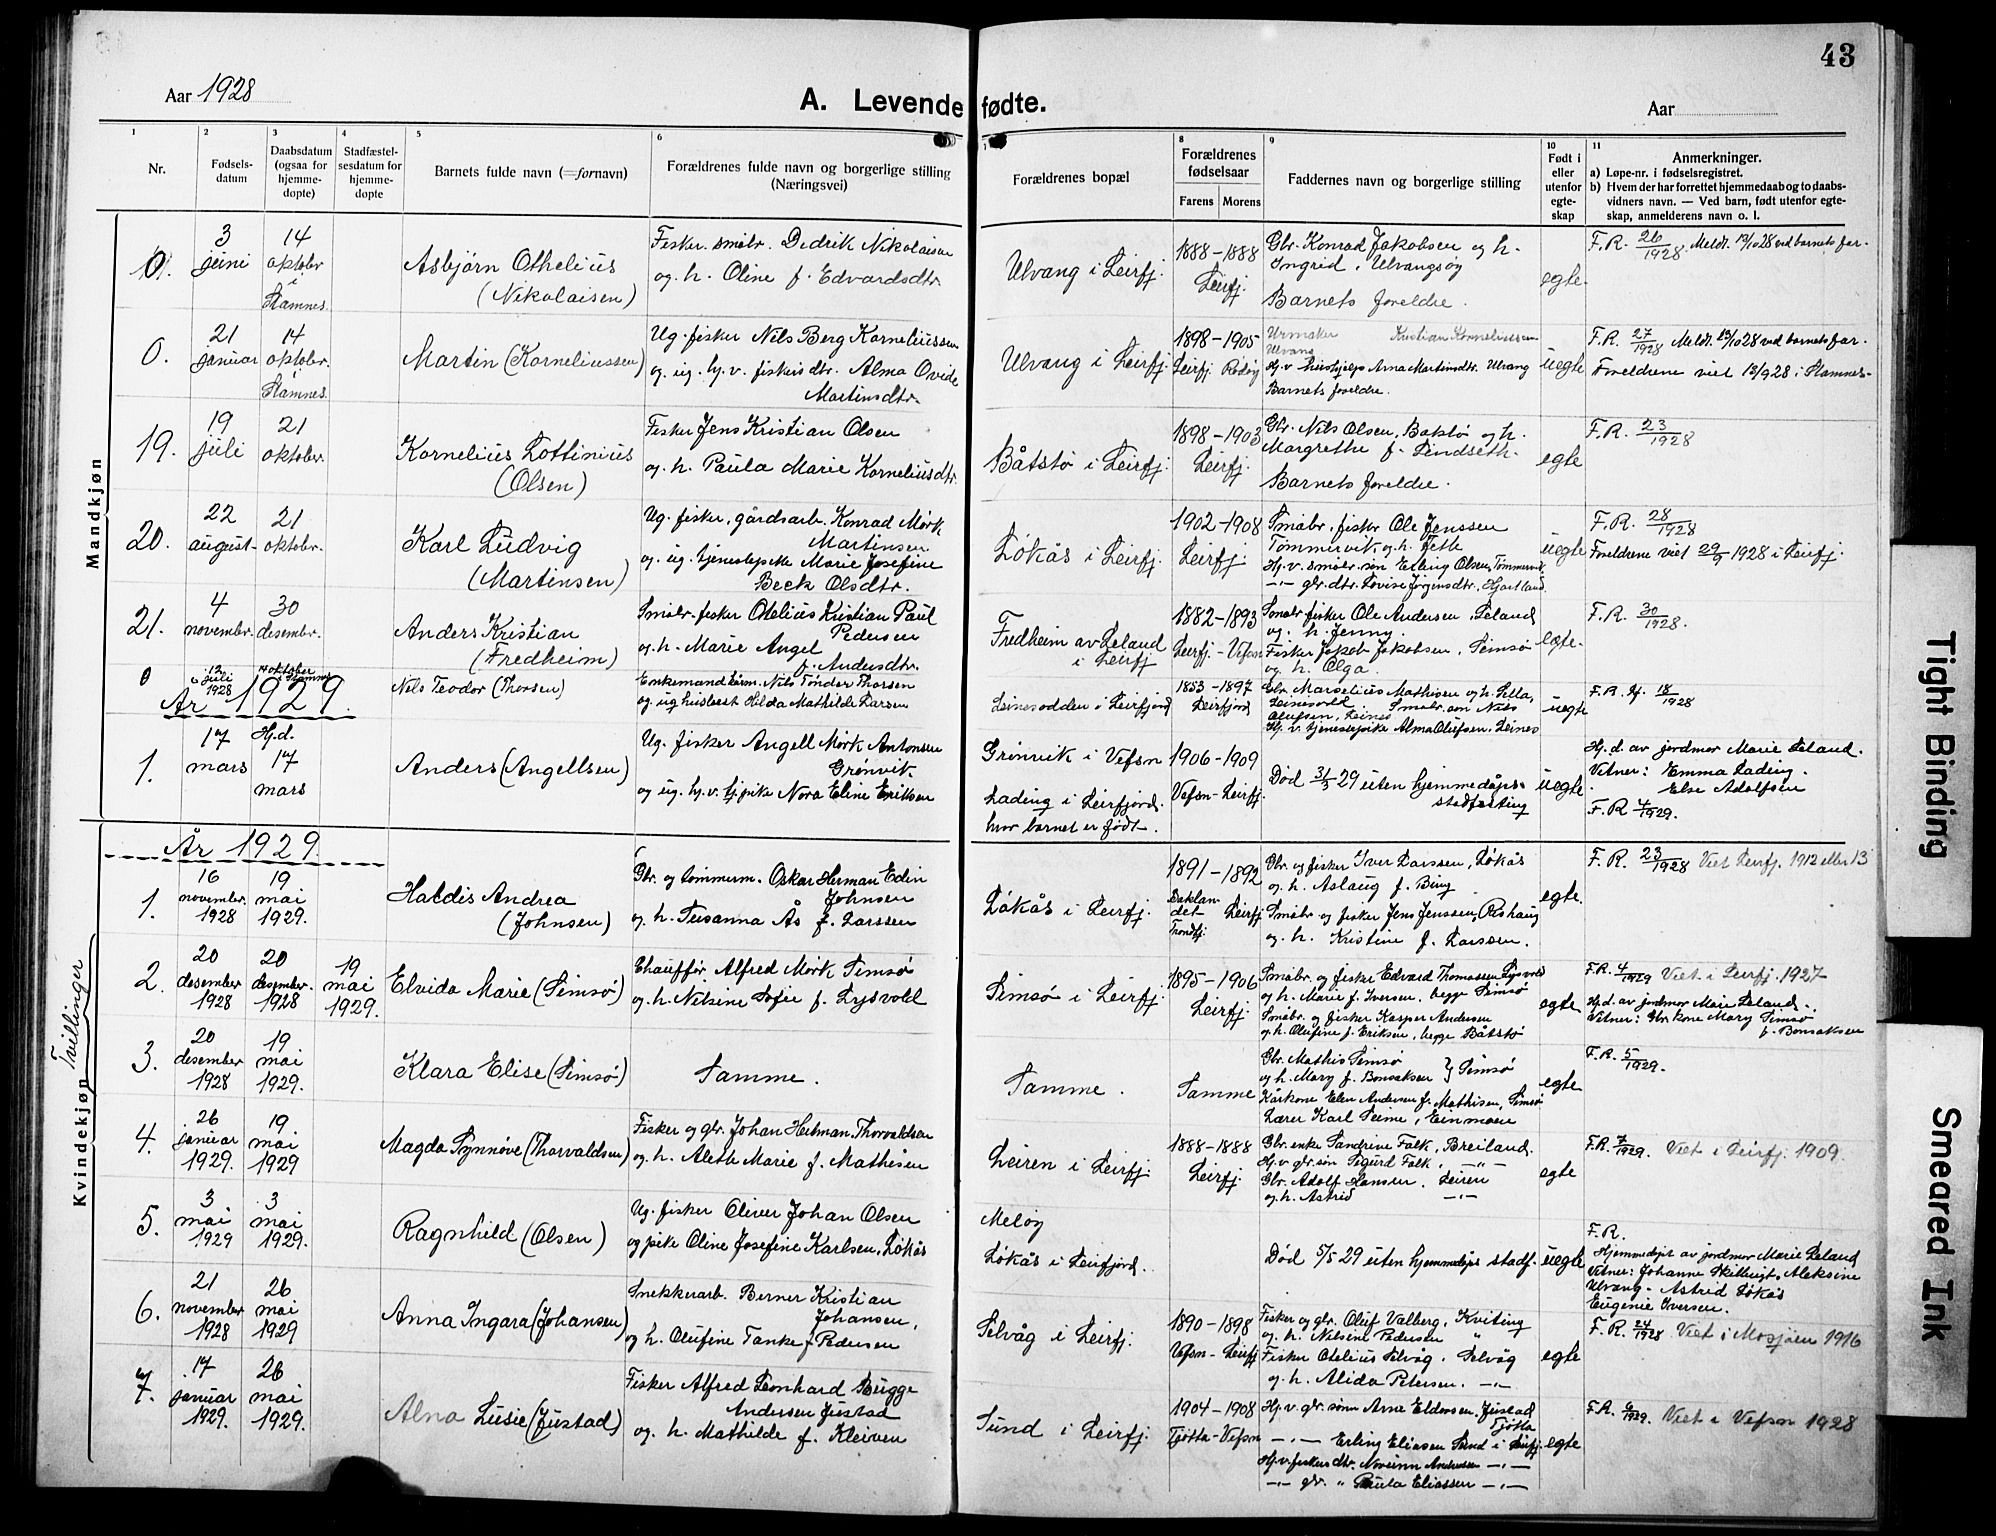 43
Aar 1928
A. Levende fødte.
Aar
1 2 3 4 5 6 7 8 9 10 11
Nr.
Fødsels-
datum
Daabsdatum
(ogsaa for
hjemme-
døpte)
Stadfæstel-
sesdatum for
hjemme-
døpte
Barnets fulde navn (=fornavn)
Forældrenes fulde navn og borgerlige stilling
(Næringsvei)
Forældrenes bopæl
Forældrenes
fødselsaar
Farens Morens
Faddernes navn og borgerlige stilling
Født i
eller
utenfor
egte-
skap
Anmerkninger.
a) Løpe-nr. i fødselsregistret.
b) Hvem der har forrettet hjemmedaab og to daabs-
vidners navn. — Ved barn, født utenfor egte-
skap, anmelderens navn o. l.
Mandkjøn
0.
3
juni
14
oktobr
i
Stamnes
Asbjørn Othelius
(Nikolaisen)
Fisker. småbr. Dedrik Nikolaisen
og. h. Oline f. Edvardsdtr.
Ulvang i Leirfj.
1888-1888
Leirfj.
Gbr. Konrad Jakobsen og h.
Ingrid, Ulvangsøy
Barnets foreldre.
egte.
F.R. 26/1928. Meldt 13/10 28 ved barnets far.
0.
21
januar
14
oktobr.
i
Stamnes
Martin (Korneliussen)
Ug. fisker Nils Berg Korneliussen
og. ug. hj. v. fiskersdtr. Alma Ovide
Martinsdtr.
Ulvang i Leirfj.
1898-1905
Leirfj. Rødøy
Urmaker Kristian Korneliussen
Ulvang
Hj. v. hushjelp Arna Martinsdtr. Ulvang
Barnets foreldre.
uegte
F.R. 27/1928 Meldt 13/10 28 ved barnets far.
Foreldrene viet 13/9 28 i Stamnes-
19.
19
juli
21
oktobr.
Kornelius Lottinius
(Olsen)
Fisker Jens Kristian Olsen
og. h. Paula Marie Korneliusdtr.
Båtstø i Leirfj.
1898-1903
Leirfj.
Gbr. Nils Olsen, Båtstø og h.
Margrethe f. Lindseth.
Barnets foreldre.
egte
F.R. 23/1928
20.
22
august
21
oktobr.
Karl Ludvig
(Martinsen)
Ug. fisker, gårdsarb. Konrad Mørk
Martinsen
og. ug. tjenestepike Marie Josefine
Beck Olsdtr.
Løkås i Leirfj.
1902-1908
Leirfj
Småbr. fisker Ole Jenssen
Tømmervik og. h. Jette
Hj. v. småbr. søn Erling Olsen, Tømmervik
—"— gbr. dtr. Lovise Jørgensdtr. Hjartland
uegte
F.R. 28/1928
Foreldrene viet 29/9 1928 i Leirfj.
21.
4
novembr.
30
desembr.
Anders Kristian
(Fredheim)
Småbr. fisker Otelius Kristian Paul
Pedersen
og. h. Marie Angel
f. Andersdtr.
Fredheim av Leland
i Leirfj
1882-1893
Leirfj.-Vefsn
Småbr. fisker Ole Andersen Leland
og. h. Jenny.
Fisker Jakob Jakobsen, Simsø
og h. Olga
egte.
F.R. 30/1928.
0
12
juli
1928
14 oktober
i Stamnes
Nils Teodor (Thorsen)
Enkemand kårm. Nils Tønder Thorsen
og. ug husbest Hilda Mathilde Larsen
Leinesodden i Leirfjord
1853-1897
Leirfjord
Gbr. Marselius Mathisen og h. Lella,
Leinesvold. Småbr. søn Nils
Olufsen, Leines
Hj. v. tjenestepike Alma Olufsen. Leines
uegte
F.R. 18/1928
År 1929.
1.
17
mars
Hj.d.
17
mars
Anders (Angellsen)
Ug. fisker Angell Mørk Antonsen
Grønvik
og ug. hj. v. tj. pike Nora Eline Eriksen
Grønvik i Vefsn
Lading i Leirfjord.
hvor barnet er født.
1906-1909
Vefsn-Leirfj.
Død 31/3 29 uten hjemmedåps-
stadfesting
uegte
Hj. d. av jordmor Marie Leland.
Vitner: Emma Lading.
Else Adolfsen
F.R 4/1929.
Kvindekjøn
År 1929.
1.
16
november.
1928
19
mai
1929.
Haldis Andrea
(Johnsen)
Gbr. og tømmerm. Oskar Herman Edin
Johnsen
og. h. Susanna Ås f. Larssen
Løkås i Leirfj.
1891-1892
Baklan-
det
Trondhj.
Leirfj
Gbr. og fisker Iver Larssen, Løkås
og. h. Aslaug f. Bing
Småbr og fisker Jens Jenssen,
og. h. Kristine f. Larssen.
egte.
F.R. 23/1928 Viet Leirfj. 1912 eller 13
Tvillinger
2.
20
desember
1928
20
desember.
1928
19
mai
1929.
Elvida Marie (Simsø)
Chauffør Alfred Mørk Simsø
og h. Nelsine Sofie f. Lysvold
Simsø i Leirfj.
1895-1906
Leirfj.
Småbr. og fisker Edvard Thomassen Lysvold
og h. Marie f. Iversen. begge Simsø
Småbr. og fisker Kasper Andersen
og h. Olufine f. Eriksen, begge Båtstø
egte
F.R. 4/1929 Viet i Leirfj. 1927
Hj. d. av jordmor Marie Leland.
Vitner: Gbr. kone Mary Simsø
f. Bonsaksen
3.
20
desember
1928
19
mai
1929.
Klara Elise (Simsø)
Samme.
Samme.
Samme
Gbr. Mathis Simsø
og h. Mary f. Bonsaksen } Simsø
Kårkone Elen Andersen f. Mathisen, Simsø
Lærer Karl Leine, Einmoen
egte
F.R. 5/1929.
4.
26
januar
1929.
19
mai
1929
Magda Synnøve (Thorvaldsen)
Fisker og gbr. Johan Herman Thorvaldsen
og. h. Aleth Marie f. Mathisen
Leiren i Leirfj.
1888-1888
Leirfj.
Gbr. enke Sandrine Falk, Breiland.
Hj. v. gbr. søn Sigurd Falk, —"—
Gbr. Adolf Hansen. Leiren
og. h. Astrid —"—
egte
F.R. 7/1929. Viet i Leirfj. 1909.
5.
3
mai
1929
3
mai
1929.
Ragnhild (Olsen)
Ug. fisker Oliver Johan Olsen
og pike Oline Josefine Karlsen, Løkås
Meløy
Løkås i Leirfjord.
Død 5/5 29 uten hjemmedåps stadf.
uegte
F.R.
Hjemmedøpt av jordmor Marie Leland
Vitner: Johanne, Aleksine
Ulvang. Astrid Løkås
Eugenie Iversen.
6.
21
november
1928
26
mai
1929
Anna Ingara (Johansen)
Snekkerarb. Berner Kristian
Johansen.
og h. Olufine Tanke f. Pedersen
Selvåg i Leirfj.
1890-1898
Vefsn-Leirfj
Fisker og gbr. Oluf Valberg, Kviting
og. h. Nilsine Pedersen "
Fisker Otelius Selvåg. Selvåg
og. h. Alida Petersen. —"—
egte
F.R. 24/1928 Viet i Mosjøen 1916
7.
17
januar
1929.
26
mai
1929.
Alna Lusie (Justad)
Fisker Alfred Leonhard Bugge
Andersen Justad
og. h. Mathilde f. Kleiven
Sund i Leirfj.
1904-1908
Tjøtta-Vefsn
Hj. v. gbr. sønn Arne Eldersen, Justad
Tjøtta
—"— Erling Eliasen Sund i Leirfj.
Hj. v. fiskersdtr. Andersen —"—
—"— gbr. " Paula Eliassen —"—
egte
F.R. 9/1929. Viet i Vefsn 1928
Tight Binding
Smeared Ink